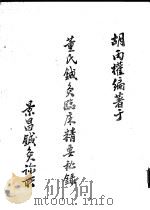 胡丙權編著于
董氏鍼灸臨床精要秘錄
景昌鍼灸診所